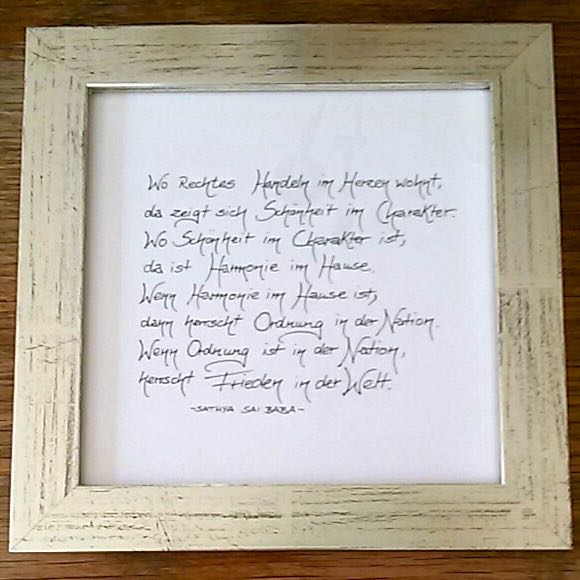 Wo Rechtes Handeln im Herzen wohnt,
da zeigt sich Schönheit im Charakter.
Wo Schönheit im Charakter ist,
da ist Harmonie im Hause.
Wenn Harmonie im Hause ist,
dann herrscht Ordnung in der Nation.
Wenn Ordnung ist in der Nation,
herrscht Frieden in der Welt.
-SATHYA SAI BABA-